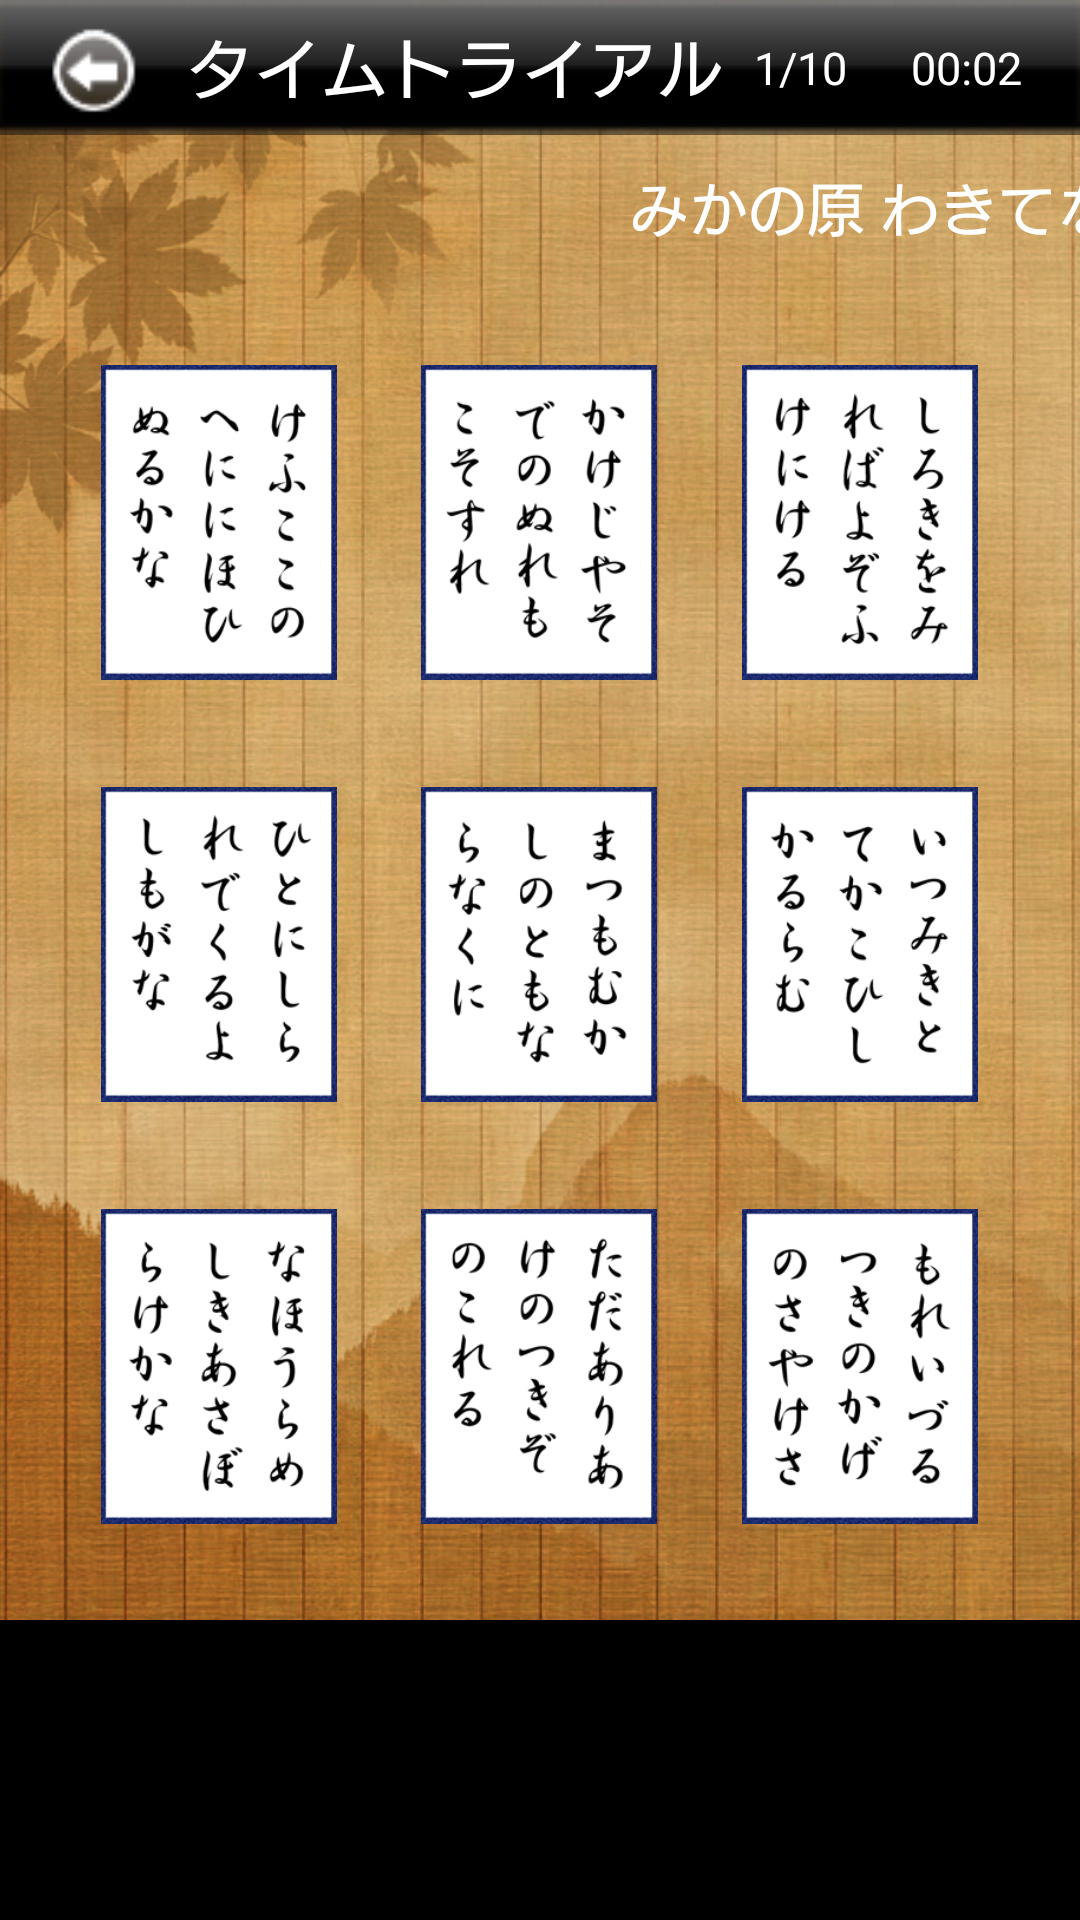 タイムトライアル 1/10 00:02
みかの原 わきてな
けふここの
へににほひ
ぬるかな
かけじやそ
でのぬれも
こそすれ
しろきをみ
ればよぞふ
けにける
ひとにしら
れでくるよ
しもがな
まつもむか
しのともな
らなくに
いつみきと
てかこひし
かるらむ
なほうらめ
しきあさぼ
らけかな
ただありあ
けのつきぞ
のこれる
もれいづる
つきのかげ
のさやけさ